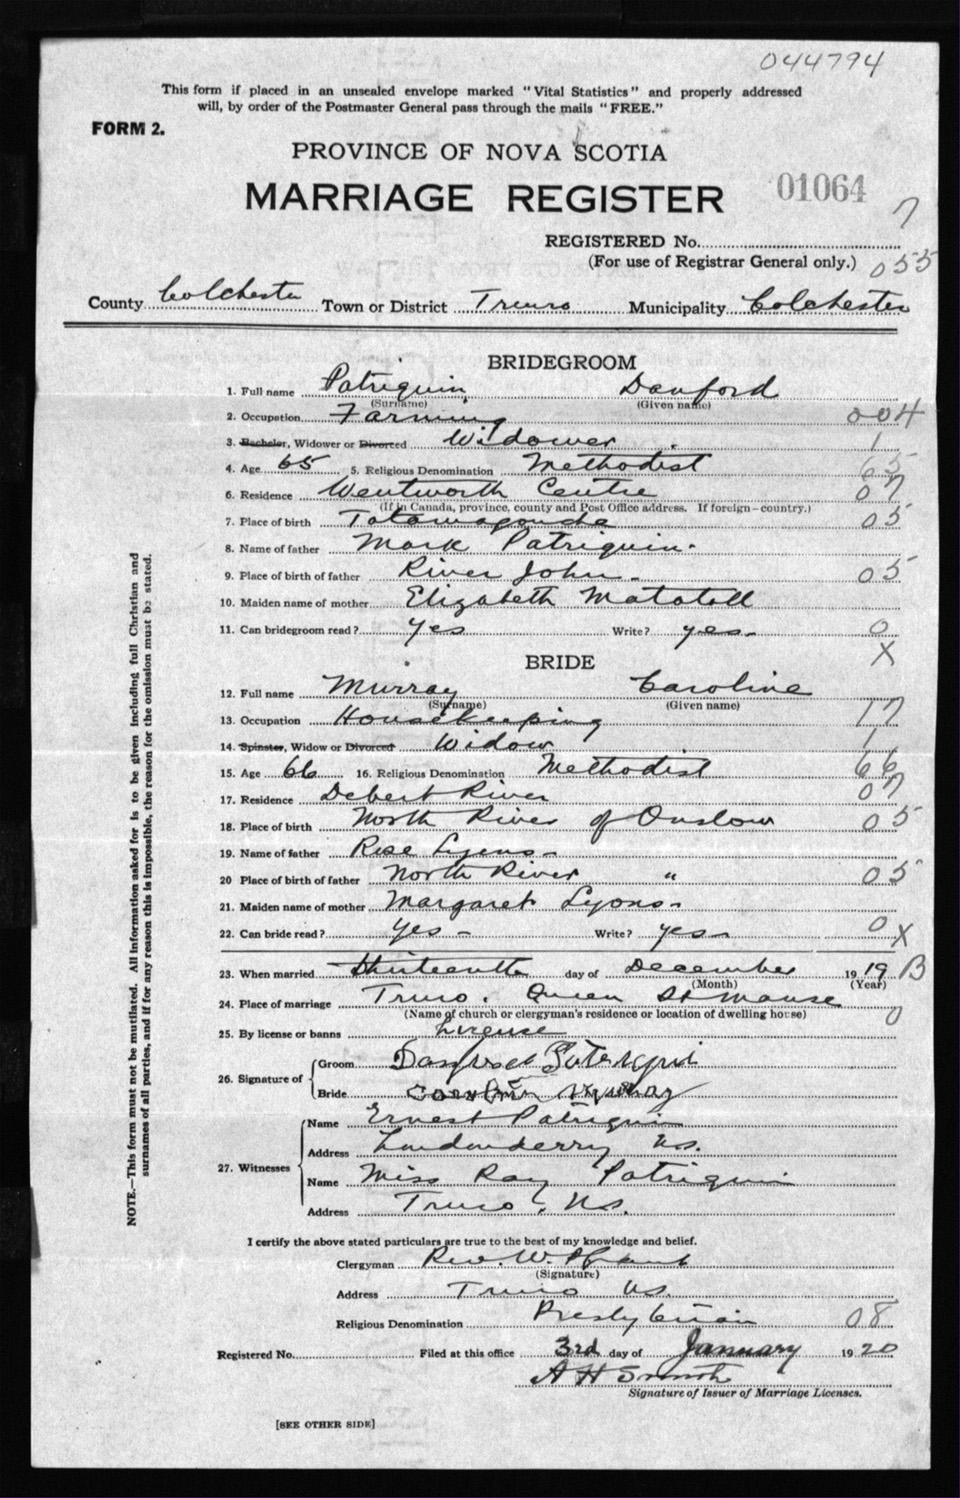 044794
This form if placed in an unsealed envelope marked "Vital Statistics" and properly addressed
will, by order of the Postmaster General pass through the mails "FREE."
FORM 2.
PROVINCE OF NOVA SCOTIA
MARRIAGE REGISTER 01064
7
REGISTERED No.
(For use of Registrar General only.) 055
County Colchester Town or District Truro Municipality Colchester
BRIDEGROOM
1. Full name Patriquin Danford
(Surname) (Given name)
2. Occupation Farming 004
3. Bachelor, Widower or Divorced Widower 1
4. Age 65 5. Religious Denomination Methodist 65
6. Residence Wentworth Centre 07
(If in Canada, province, county and Post Office address. If foreign—country.)
7. Place of birth Tatamagouche 05
8. Name of father Mark Patriquin.
9. Place of birth of father River John 05
10. Maiden name of mother Elizabeth Matatall
11. Can bridegroom read? yes Write? yes 0
X
BRIDE
12. Full name Murray Caroline
(Surname) (Given name)
13. Occupation Housekeeping 17
14. Spinster, Widow or Divorced Widow 1
15. Age 66 16. Religious Denomination Methodist 66
17. Residence Debert River 07
18. Place of birth North River of Onslow 05
19. Name of father Rose Lyons
20 Place of birth of father North River " 05
21. Maiden name of mother Margaret Lyons
22. Can bride read? Yes Write? yes 0 X
23. When married Thirteenth day of December 1919 B
(Month) (Year)
24. Place of marriage Truro. Queen St Manse
(Name of church or clergyman's residence or location of dwelling house) 0
25. By license or banns License
26. Signature of Groom Danford
Bride Murray
27. Witnesses Name Ernest Patriquin
Address Londonderry N.S.
Name Miss Ray Patriquin
Address Truro, N.S.
I certify the above stated particulars are true to the best of my knowledge and belief.
Clergyman Rev. W.
(Signature)
Address Truro N.S.
Religious Denomination Presbyterian 08
Registered No. Filed at this office 3rd day of January 1920
A H Smith
Signature of Issuer of Marriage Licenses.
[SEE OTHER SIDE]
NOTE.—This form must not be mutilated. All information asked for is to be given including full Christian and
surnames of all parties, and if for any reason this is impossible, the reason for the omission must be stated.